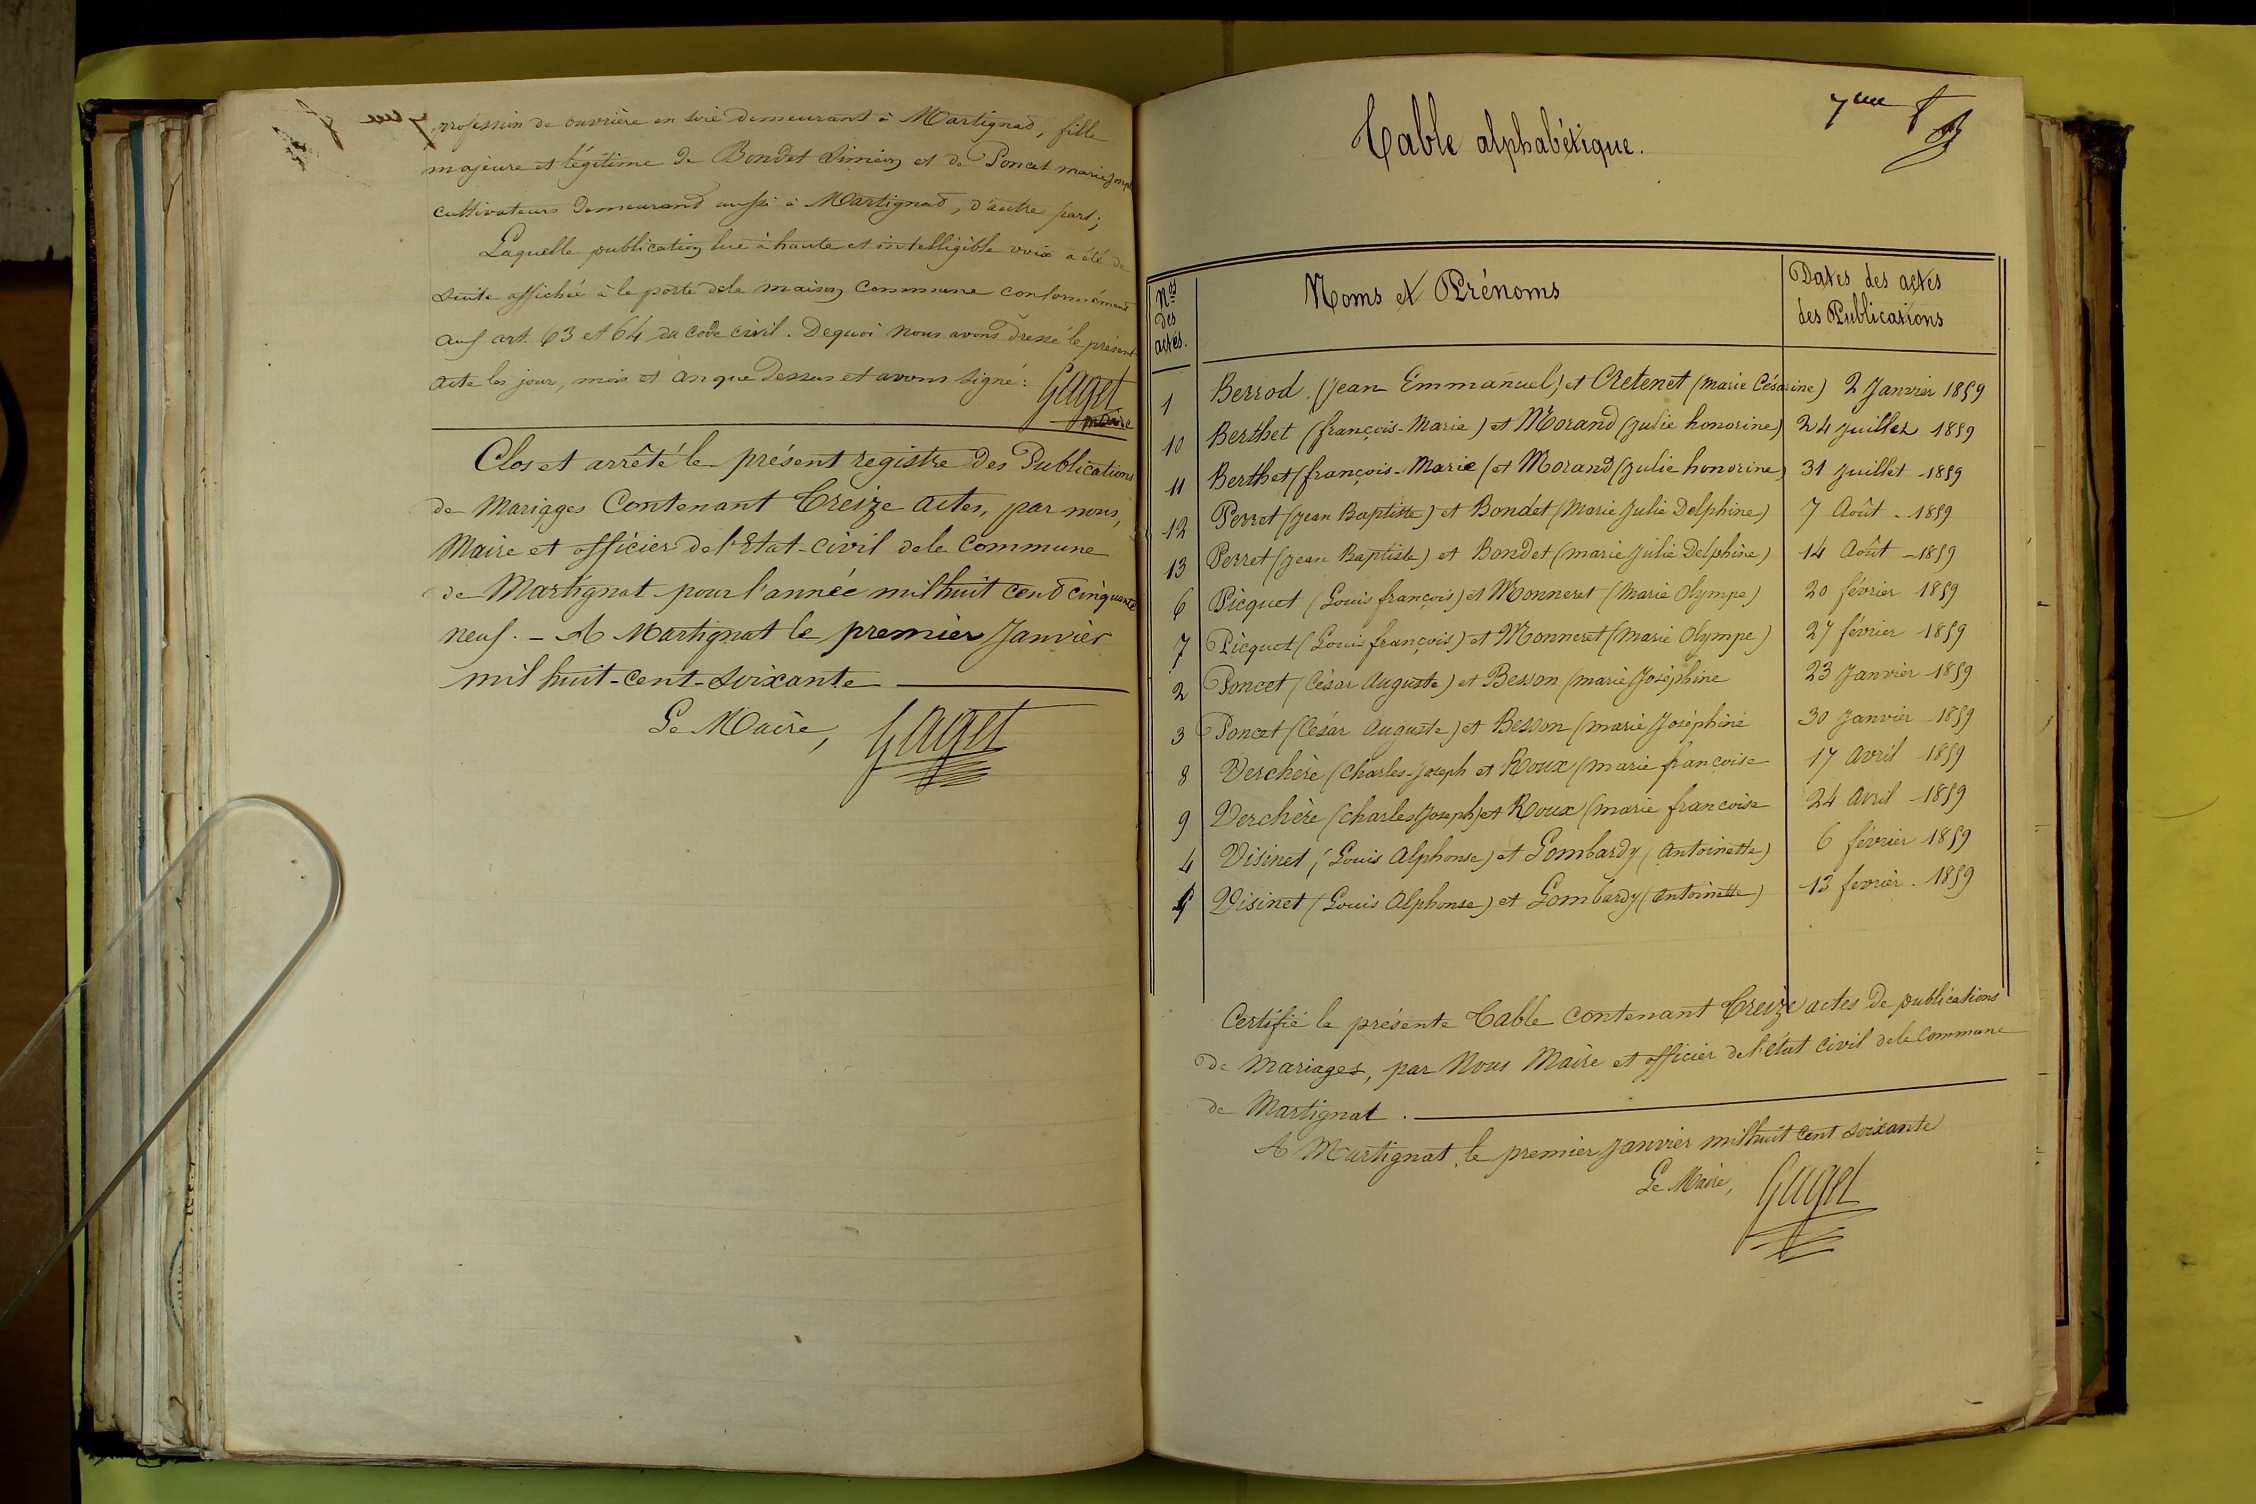 profession de ouvrière en soie demeurant à Martignat, fille
majeure et légitime de Bondet Siméon et de Poncet marie Joseph
cultivateurs demeurand aussi à Martignat, d'autre part;
Laquelle publication lue à haute et intelligible voix a été de
suite affichée à le porte dela maison Commune conformément
aux art. 63 et 64 du Code civil. Dequoi nous avons dressé le présent
acte les jour, mois et an que dessus et avons signé:
Gaget
maire
Clos et arrêté le présent registre des Publications
de Mariages Contenant Treize actes, par nous,
Maire et officier de l'Etat-civil dela Commune
de Martignat pour l'année mil huit cent cinquante
neuf. - A Martignat le premier Janvier
mil huit-cent-soixante
Le Maire, Gaget
7me
Table alphabétique.
Nos des actes. Noms et Prénoms Dates des actes des Publications
1 Berrod (Jean Emmanuel) et Cretenet (Marie Césarine) 2 Janvier 1859
10 Berthet (françois-Marie) et Morand (Julie honorine) 24 Juillet 1859
11 Berthet (françois-Marie (et Morand (Julie honorine) 31 Juillet -1859
12 Perret (Jean Baptiste) et Bondet (Marie Julie Delphine) 7 Août -1859
13 Perret (Jean Baptiste) et Bondet (Marie Julie Delphine) 14 Août -1859
6 Picquet (Louis françois) et Monneret (Marie Olympe) 20 février 1859
7 Picquet (Louis françois) et Monneret (Marie Olympe) 27 février -1859
2 Poncet (César Auguste) et Besson (marie Joséphine 23 Janvier -1859
3 Poncet (César Auguste) et Besson (marie Joséphine 30 Janvier -1859
8 Verchère (Charles-Joseph et Roux (marie françoise 17 Avril -1859
9 Verchère (Charles Joseph) et Roux (marie françoise 24 Avril -1859
4 Visinet (Louis Alphonse) et Lombardy (Antoinette) 6 février -1859
5 Visinet (Louis Alphonse) et Lombardy (Antoinette) 13 fevrier. 1859
Certifié la présente Table contenant Treize actes de publications
de Mariages, par Nous Maire et officier de l'état civil dela Commune
de Martignat.
A Martignat le premier Janvier mil huit cent soixante
Le Maire, Gaget